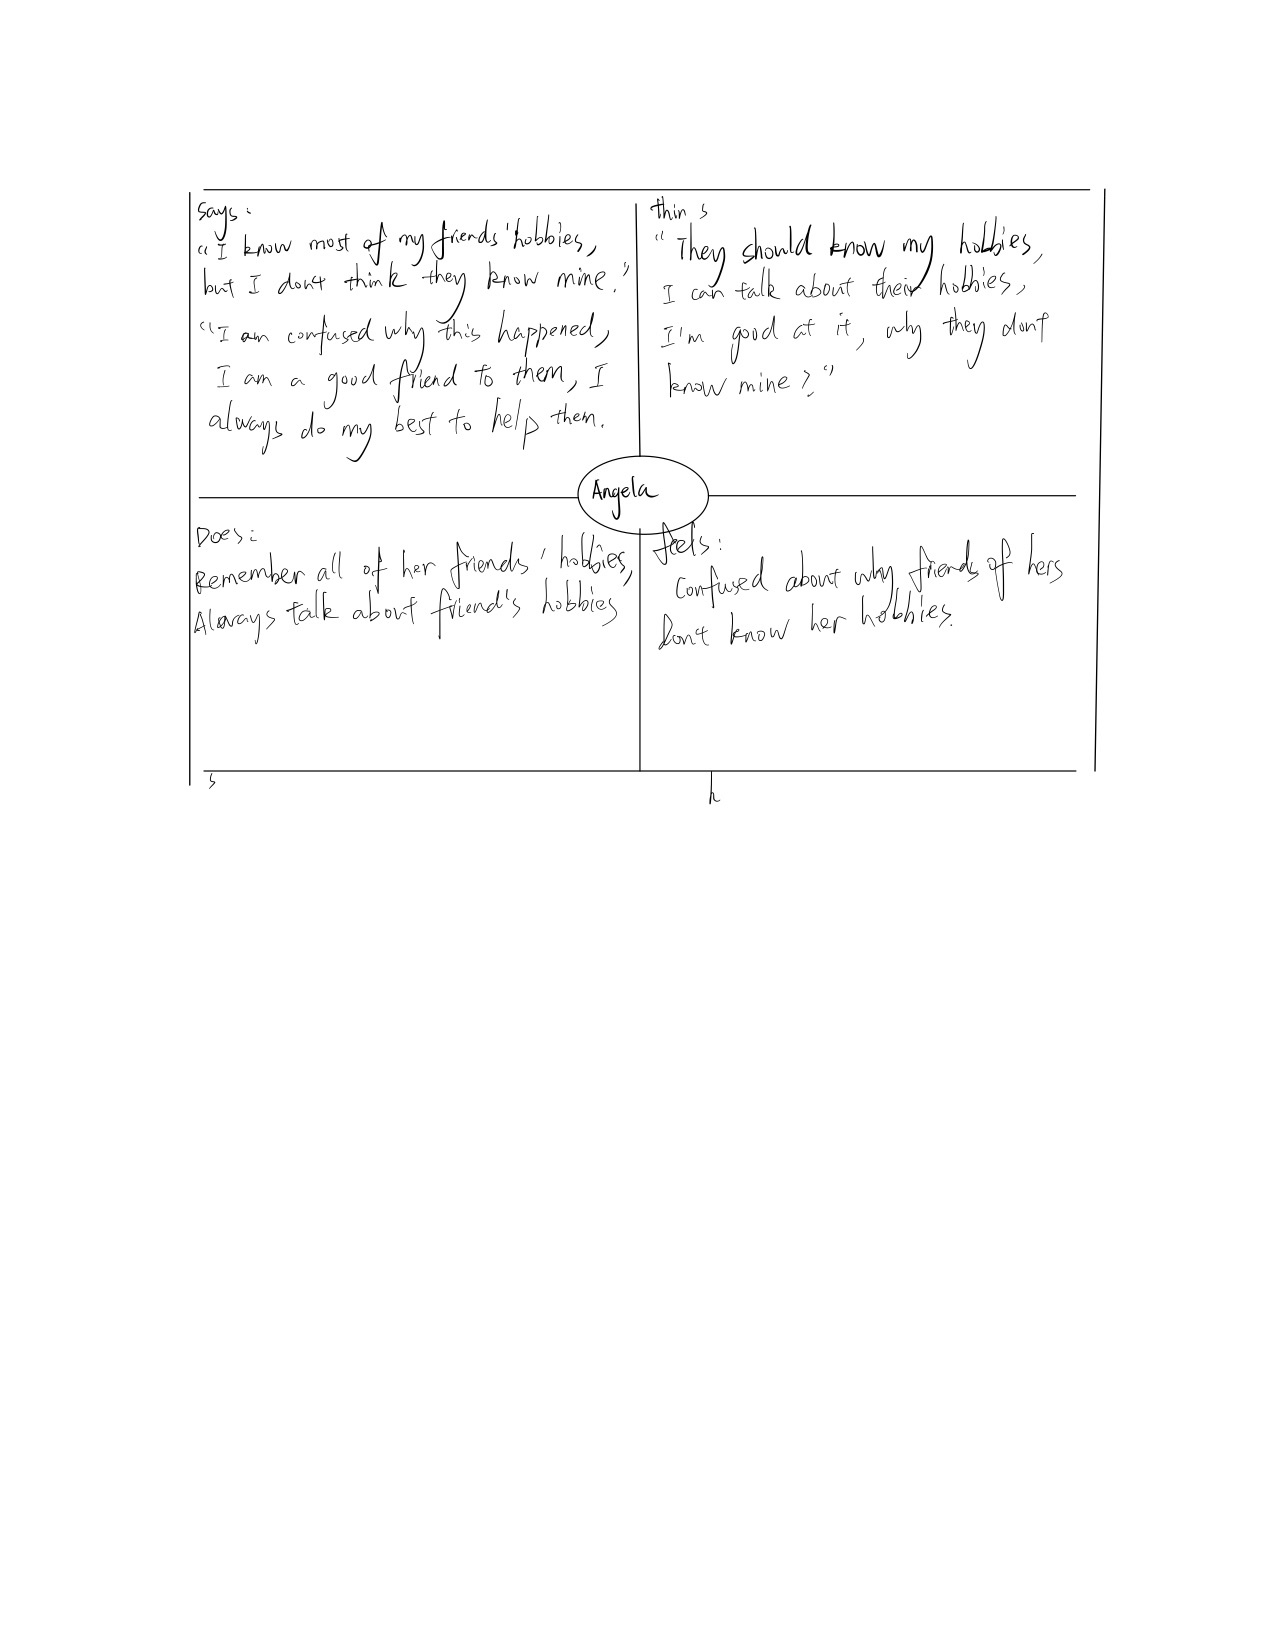 Says:
"I know most of my friends' hobbies,
but I don't think they know mine."
"I am confused why this happened,
I am a good friend to them, I
always do my best to help them.
thin s
"They should know my hobbies,
I can talk about their hobbies,
I'm good at it, why they dont
know mine?"
Angela
Does:
Remember all of her friends' hobbies,
Always talk about friend's hobbies
feels:
Confused about why friends of hers
Don't know her hobbies.
s
h